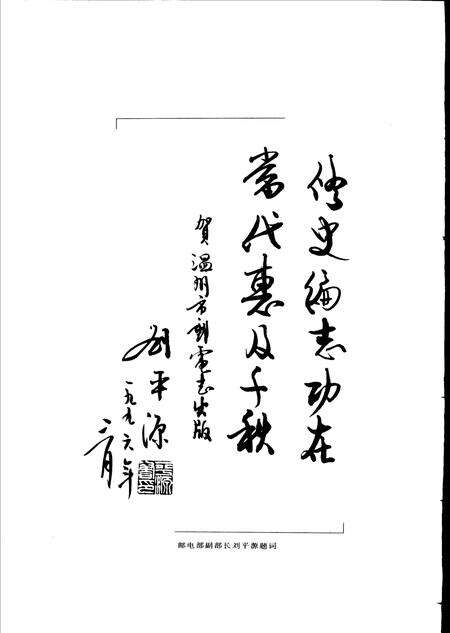 修史编志功在
當代惠及千秋
賀温州市邮电志出版
刘平源
一九九六年
二月
邮电部副部长刘平源题词